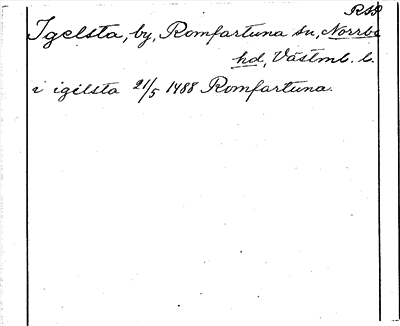 RSP
Igelsta, by, Romfartuna sn, Norrbo
hd, Västml. l.
i igilsta 21/5 1488 Romfartuna.